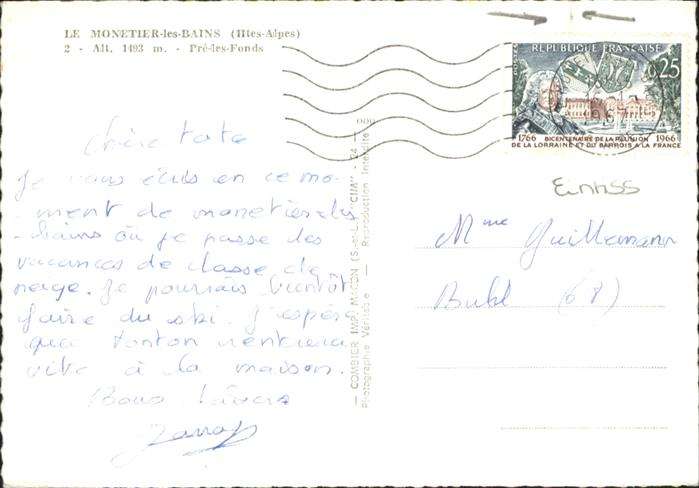 LE MONETIER-les-BAINS (Htes-Alpes)
2 - Alt. 1493 m. - Pré-les-Fonds
POSTES
REPUBLIQUE FRANÇAISE
0,25
1766 BICENTENAIRE DE LA REUNION 1966
DE LA LORRAINE ET DU BARROIS A LA FRANCE
Einriss
chère tata
Je vous écris en ce mo-
-ment de monetier-les
-bains où je passe des
vacances de classe de
neige. Je pourrais bientôt
faire du ski. J'espère
que tonton rentrera
vite à la maison.
Bons baisers
Mme Guillemann
Buhl (68)
COMBIER IMP. MACON (S.-et-L.) "CIM"
Photographie Véritable - Reproduction Interdite